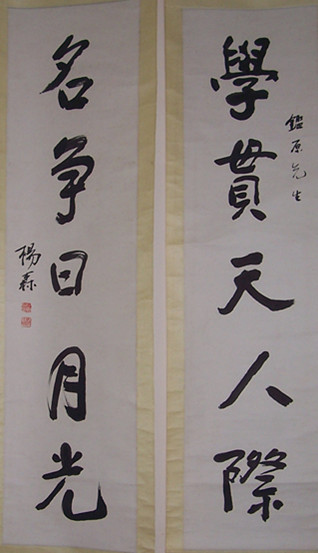 學貫天人際
鑑原先生
名争日月光
楊森